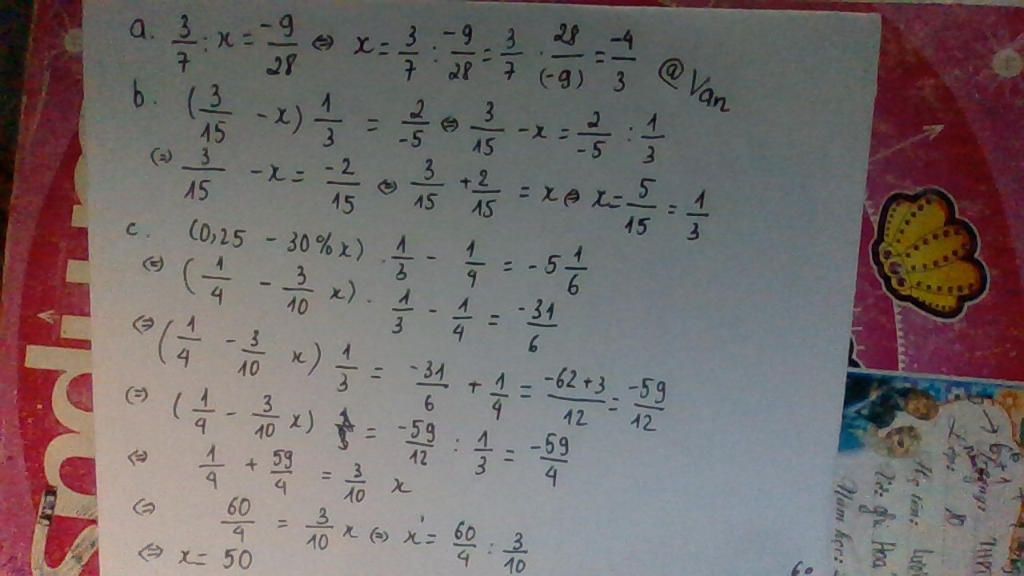 a. 3/7 : x = -9/28 ⇔ x = 3/7 : -9/28 = 3/7 . 28/(-9) = -4/3 @Van
b. (3/15 - x) 1/3 = 2/-5 ⇔ 3/15 - x = 2/-5 : 1/3
⇔ 3/15 - x = -2/15 ⇔ 3/15 + 2/15 = x ⇔ x = 5/15 = 1/3
c. (0,25 - 30% x) . 1/3 - 1/4 = -5 1/6
⇔ (1/4 - 3/10 x) . 1/3 - 1/4 = -31/6
⇔ (1/4 - 3/10 x) 1/3 = -31/6 + 1/4 = -62+3/12 = -59/12
⇔ (1/4 - 3/10 x) = -59/12 : 1/3 = -59/4
⇔ 1/4 + 59/4 = 3/10 x
⇔ 60/4 = 3/10 x ⇔ x = 60/4 : 3/10
⇔ x = 50